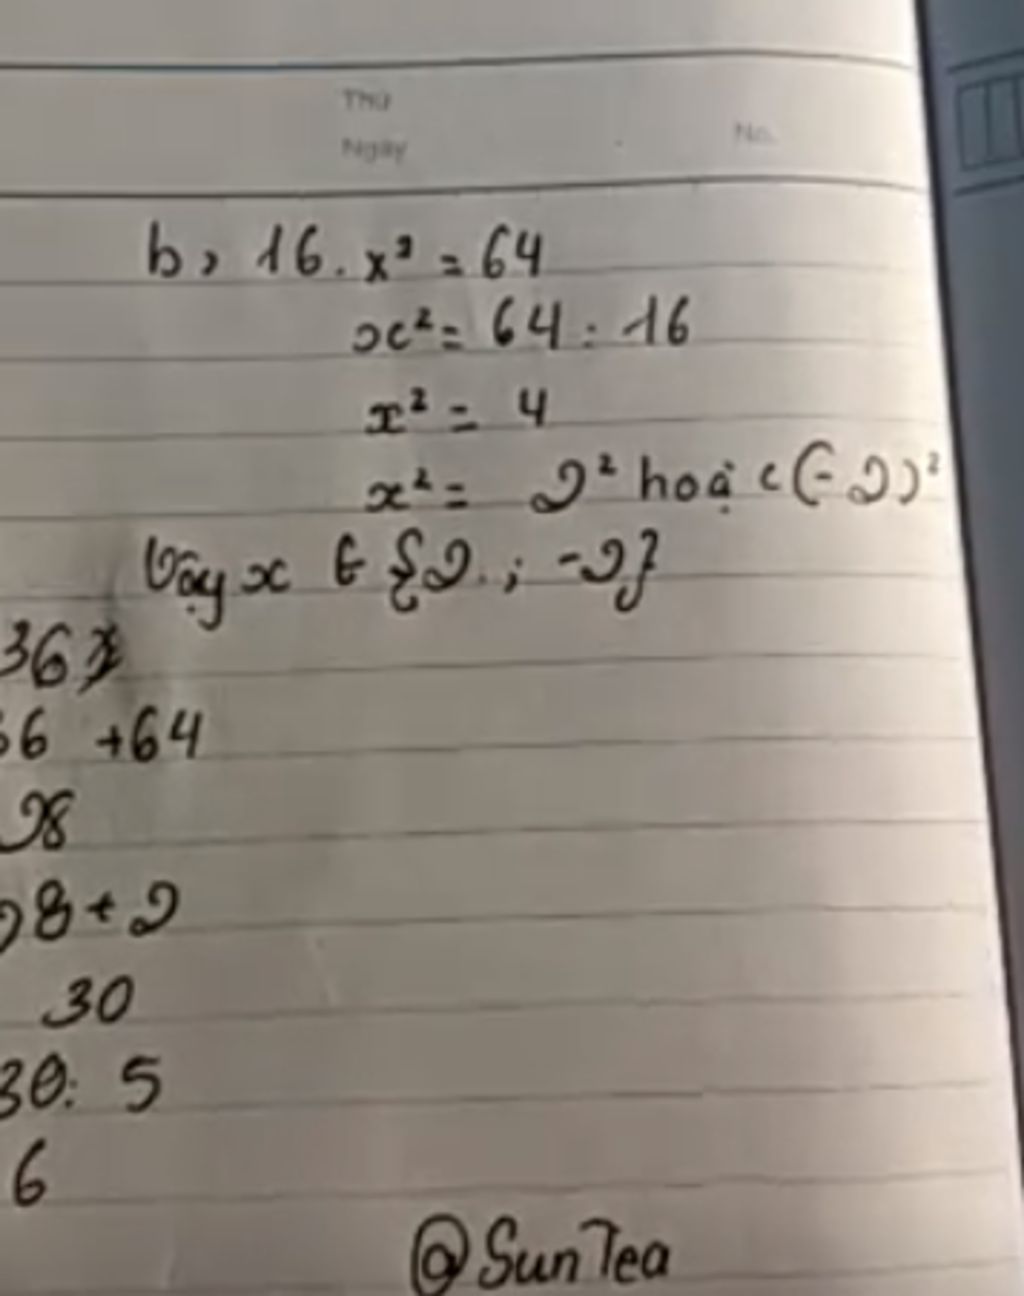 Thứ
Ngày
No.
b, 16. x² = 64
x² = 64 : 16
x² = 4
x² = 2² hoặc (-2)²
Vậy x ∈ {2 ; -2}
36
66 +64
28
28 + 2
30
30 : 5
6
@SunTea